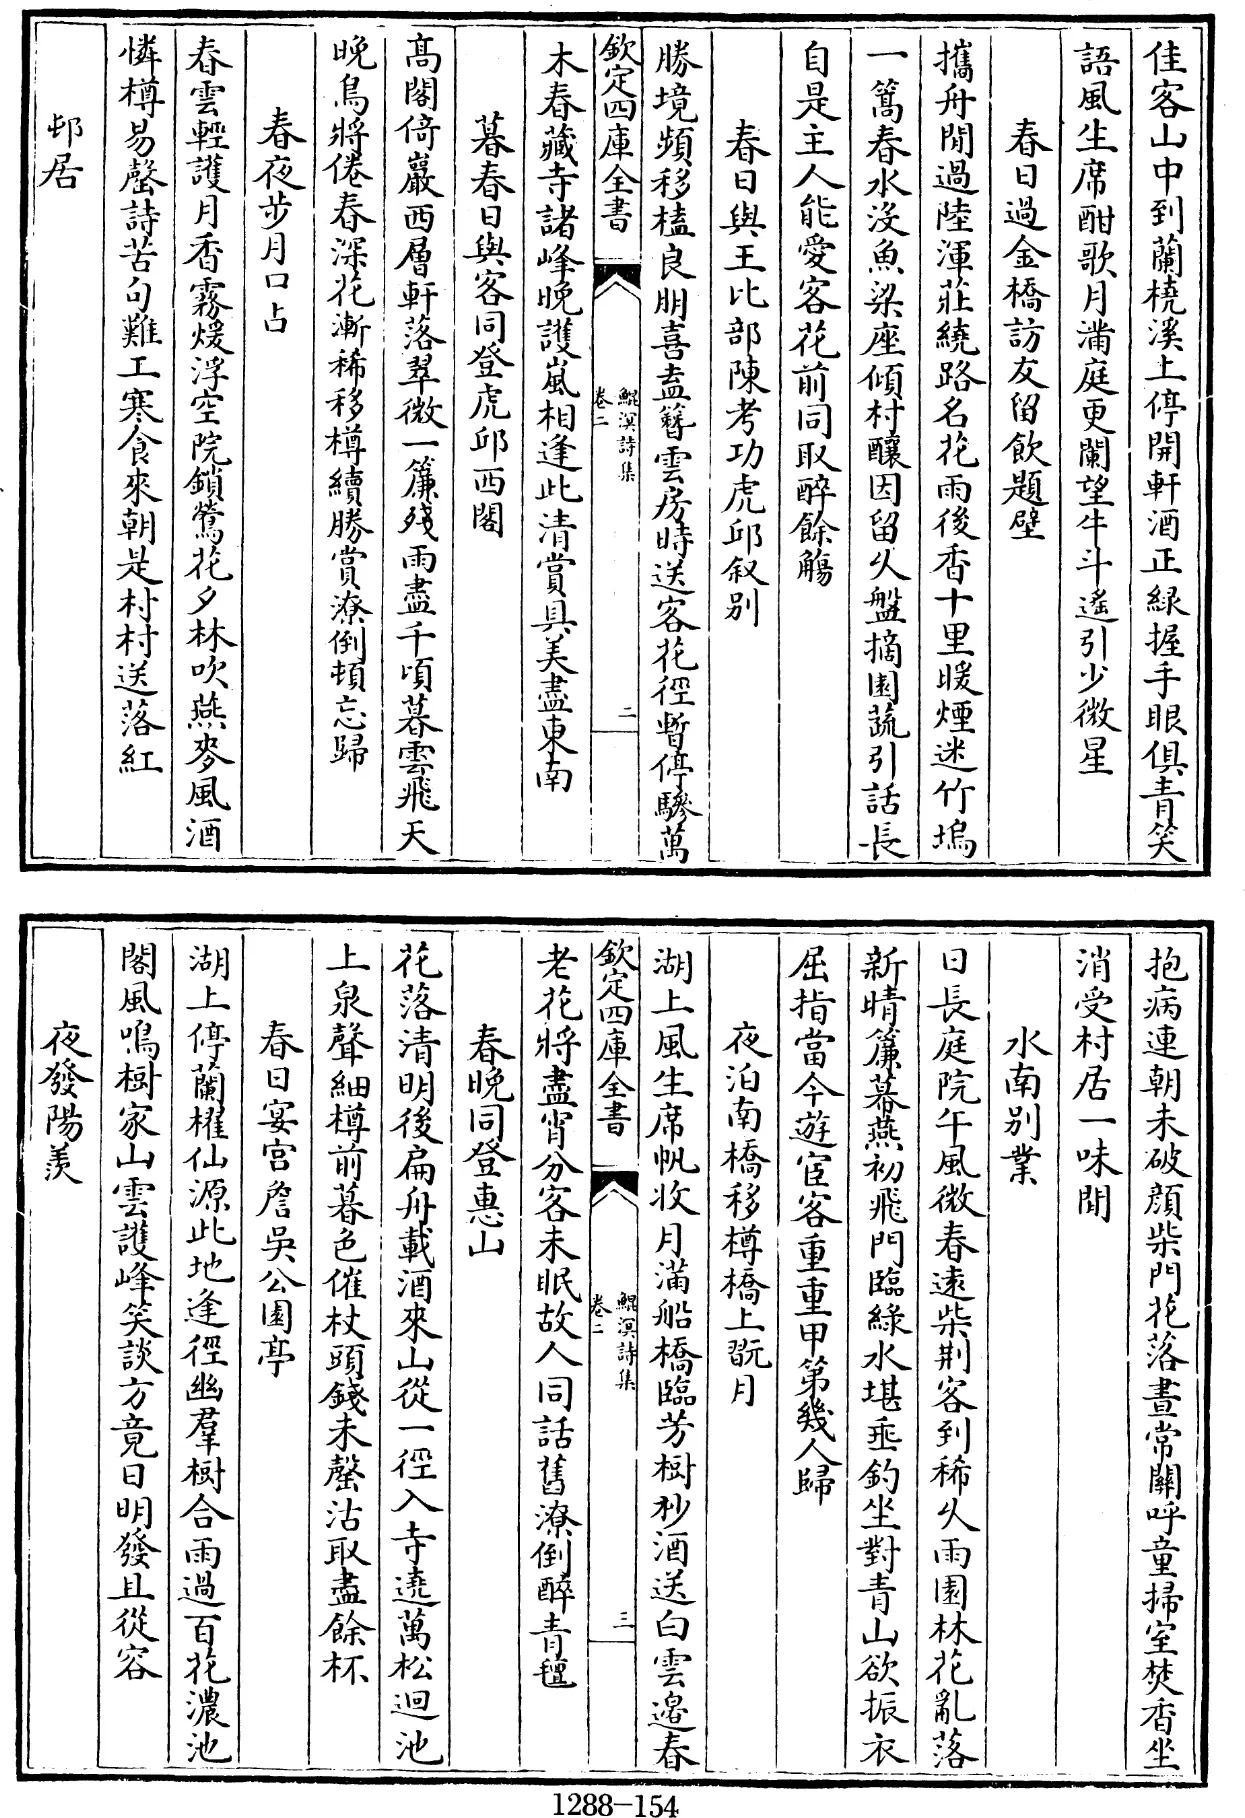 佳客山中到蘭橈溪上停開軒酒正綠握手眼俱青笑
語風生席酣歌月滿庭更闌望牛斗遙引少微星
春日過金橋訪友留飲題壁
攜舟閒過陸渾莊繞路名花雨後香十里暖煙迷竹塢
一篙春水沒魚梁座傾村釀因留久盤摘園蔬引話長
自是主人能愛客花前同取醉餘觴
春日與王比部陳考功虎邱叙别
勝境頻移榼良朋喜盍簪雲房時送客花徑暫停驂萬
欽定四庫全書
鯤溟詩集
卷二
二
木春藏寺諸峰晚護嵐相逢此清賞具美盡東南
暮春日與客同登虎邱西閣
高閣倚巖西層軒落翠微一簾殘雨盡千頃暮雲飛天
晚鳥將倦春深花漸稀移樽續勝賞潦倒頓忘歸
春夜步月口占
春雲輕護月香霧煖浮空院鎖鶯花夕林吹燕麥風酒
憐樽易罄詩苦句難工寒食來朝是村村送落紅
邨居
抱病連朝未破顔柴門花落晝常關呼童掃室焚香坐
消受村居一味閒
水南别業
日長庭院午風微春遠柴荆客到稀久雨園林花亂落
新晴簾幕燕初飛門臨綠水堪垂釣坐對青山欲振衣
屈指當今遊宦客重重甲第幾人歸
夜泊南橋移樽橋上翫月
湖上風生席帆收月滿船橋臨芳樹杪酒送白雲邊春
欽定四庫全書
鯤溟詩集
卷二
三
老花將盡宵分客未眠故人同話舊潦倒醉青氊
春晚同登惠山
花落清明後扁舟載酒來山從一徑入寺遶萬松迴池
上泉聲細樽前暮色催杖頭錢未罄沽取盡餘杯
春日宴宫詹吳公園亭
湖上停蘭櫂仙源此地逢徑幽羣樹合雨過百花濃池
閣風鳴樹家山雲護峰笑談方竟日明發且從容
夜發陽羨
1288-154